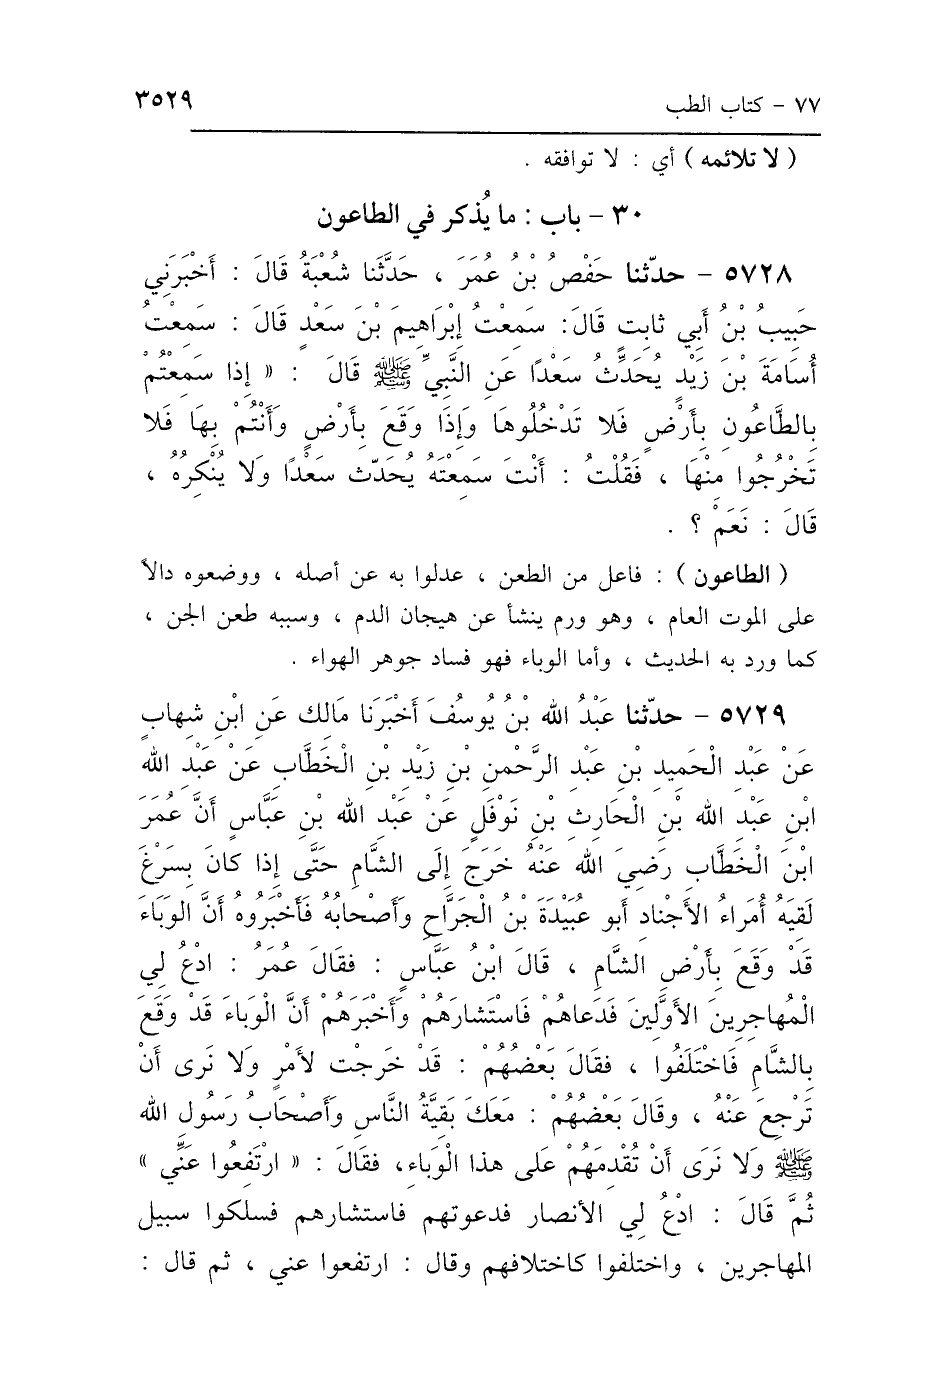 ٧٧ - كتاب الطب ٣٥٢٩
( لا تلائمه ) أي : لا توافقه .
٣٠ - باب : ما يُذكر في الطاعون
٥٧٢٨ - حدّثنا حَفْصُ بْنُ عُمَرَ ، حَدَّثَنا شُعْبَةُ قَالَ : أَخْبَرَنِي
حَبِيبُ بْنُ أَبي ثابِتٍ قَالَ: سَمِعْتُ إِبْرَاهِيمَ بْنَ سَعْدٍ قَالَ : سَمِعْتُ
أُسَامَةَ بْنَ زَيْدٍ يُحَدِّثُ سَعْداً عَنِ النَّبِيِّ ﷺ قَالَ : « إِذا سَمِعْتُمْ
بِالطَّاعُونِ بِأَرْضٍ فَلا تَدْخُلُوهَا وَإِذَا وَقَعَ بِأَرْضٍ وَأَنْتُمْ بِهَا فَلا
تَخْرُجُوا مِنْهَا ، فَقُلْتُ : أَنْتَ سَمِعْتَهُ يُحَدّثُ سَعْدًا وَلا يُنْكِرُهُ ،
قَالَ : نَعَمْ ؟ .
( الطاعون ) : فاعل من الطعن ، عدلوا به عن أصله ، ووضعوه دالاً
على الموت العام ، وهو ورم ينشأ عن هيجان الدم ، وسببه طعن الجن ،
كما ورد به الحديث ، وأما الوباء فهو فساد جوهر الهواء .
٥٧٢٩ - حدّثنا عَبْدُ الله بْنُ يُوسُفَ أَخْبَرَنَا مَالِكٌ عَنِ ابْنِ شِهابٍ
عَنْ عَبْدِ الْحَمِيدِ بْنِ عَبْدِ الرَّحْمنِ بْنِ زَيْدِ بْنِ الْخَطَّابِ عَنْ عَبْدِ الله
ابْنِ عَبْدِ الله بْنِ الْحَارِثِ بْنِ نَوْفَلٍ عَنْ عَبْدِ الله بْنِ عَبَّاسٍ أَنَّ عُمَرَ
ابْنَ الْخَطَّابِ رَضِيَ الله عَنْهُ خَرَجَ إِلَى الشَّامِ حَتَّى إِذا كانَ بِسَرْغَ
لَقِيَهُ أُمَرَاءُ الأَجْنادِ أبو عُبَيْدَةَ بْنُ الْجَرَّاحِ وأَصْحابُهُ فَأَخْبَرُوهُ أَنَّ الوَبَاءَ
قَدْ وَقَعَ بِأَرْضِ الشَّامِ ، قَالَ ابْنُ عَبَّاسٍ : فقَالَ عُمَرُ : ادْعُ لِي
الْمُهاجِرِينَ الأَوَّلِينَ فَدَعاهُمْ فَاسْتَشارَهُمْ وأَخْبَرَهُمْ أَنَّ الْوَبَاءَ قَدْ وَقَعَ
بِالشَّامِ فَاخْتَلَفُوا ، فقَالَ بَعْضُهُمْ : قَدْ خَرَجْت لأَمْرٍ وَلا نَرى أَنْ
تَرْجِعَ عَنْهُ ، وقَالَ بَعْضُهُمْ : مَعَكَ بَقِيَّةُ النَّاسِ وأَصْحَابُ رَسُولِ الله
ﷺ وَلا نَرَى أَنْ تُقْدِمَهُمْ عَلَى هذا الْوَبَاءِ، فقَالَ : « ارْتَفِعُوا عَنِّي »
ثُمَّ قَالَ : ادْعُ لِي الأنصار فدعوتهم فاستشارهم فسلكوا سبيل
المهاجرين ، واختلفوا كاختلافهم وقال : ارتفعوا عني ، ثم قال :